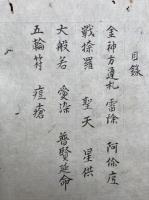 目録
金神方違札 雷除 阿佗度
戰捺羅 聖天 星供
大般若 愛染 普賢延命
五輪符 疱瘡